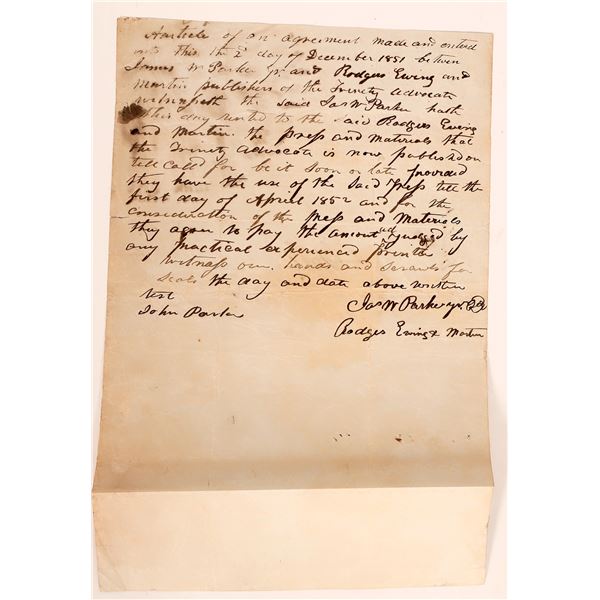 Article of an agreement made and entered
into this the 2d day of December 1851 between
James W Parker Jr and Rodgers Ewing and
Martin publishers of the Trinity Advocate
witnesseth the said Jas W Parker hath
this day rented to the said Rodgers Ewing
and Martin the press and materials that
the Trinity Advocate is now published on
till call for be it soon or late provided
they have the use of the said press till the
first day of April 1852 and for the
consideration of the press and materials
they agree to pay the amount adjudged by
any practical experienced printer
witness our hands and for
seals the day and date above written
test
John Parker
Jas W Parker Jr
Rodgers Ewing & Martin